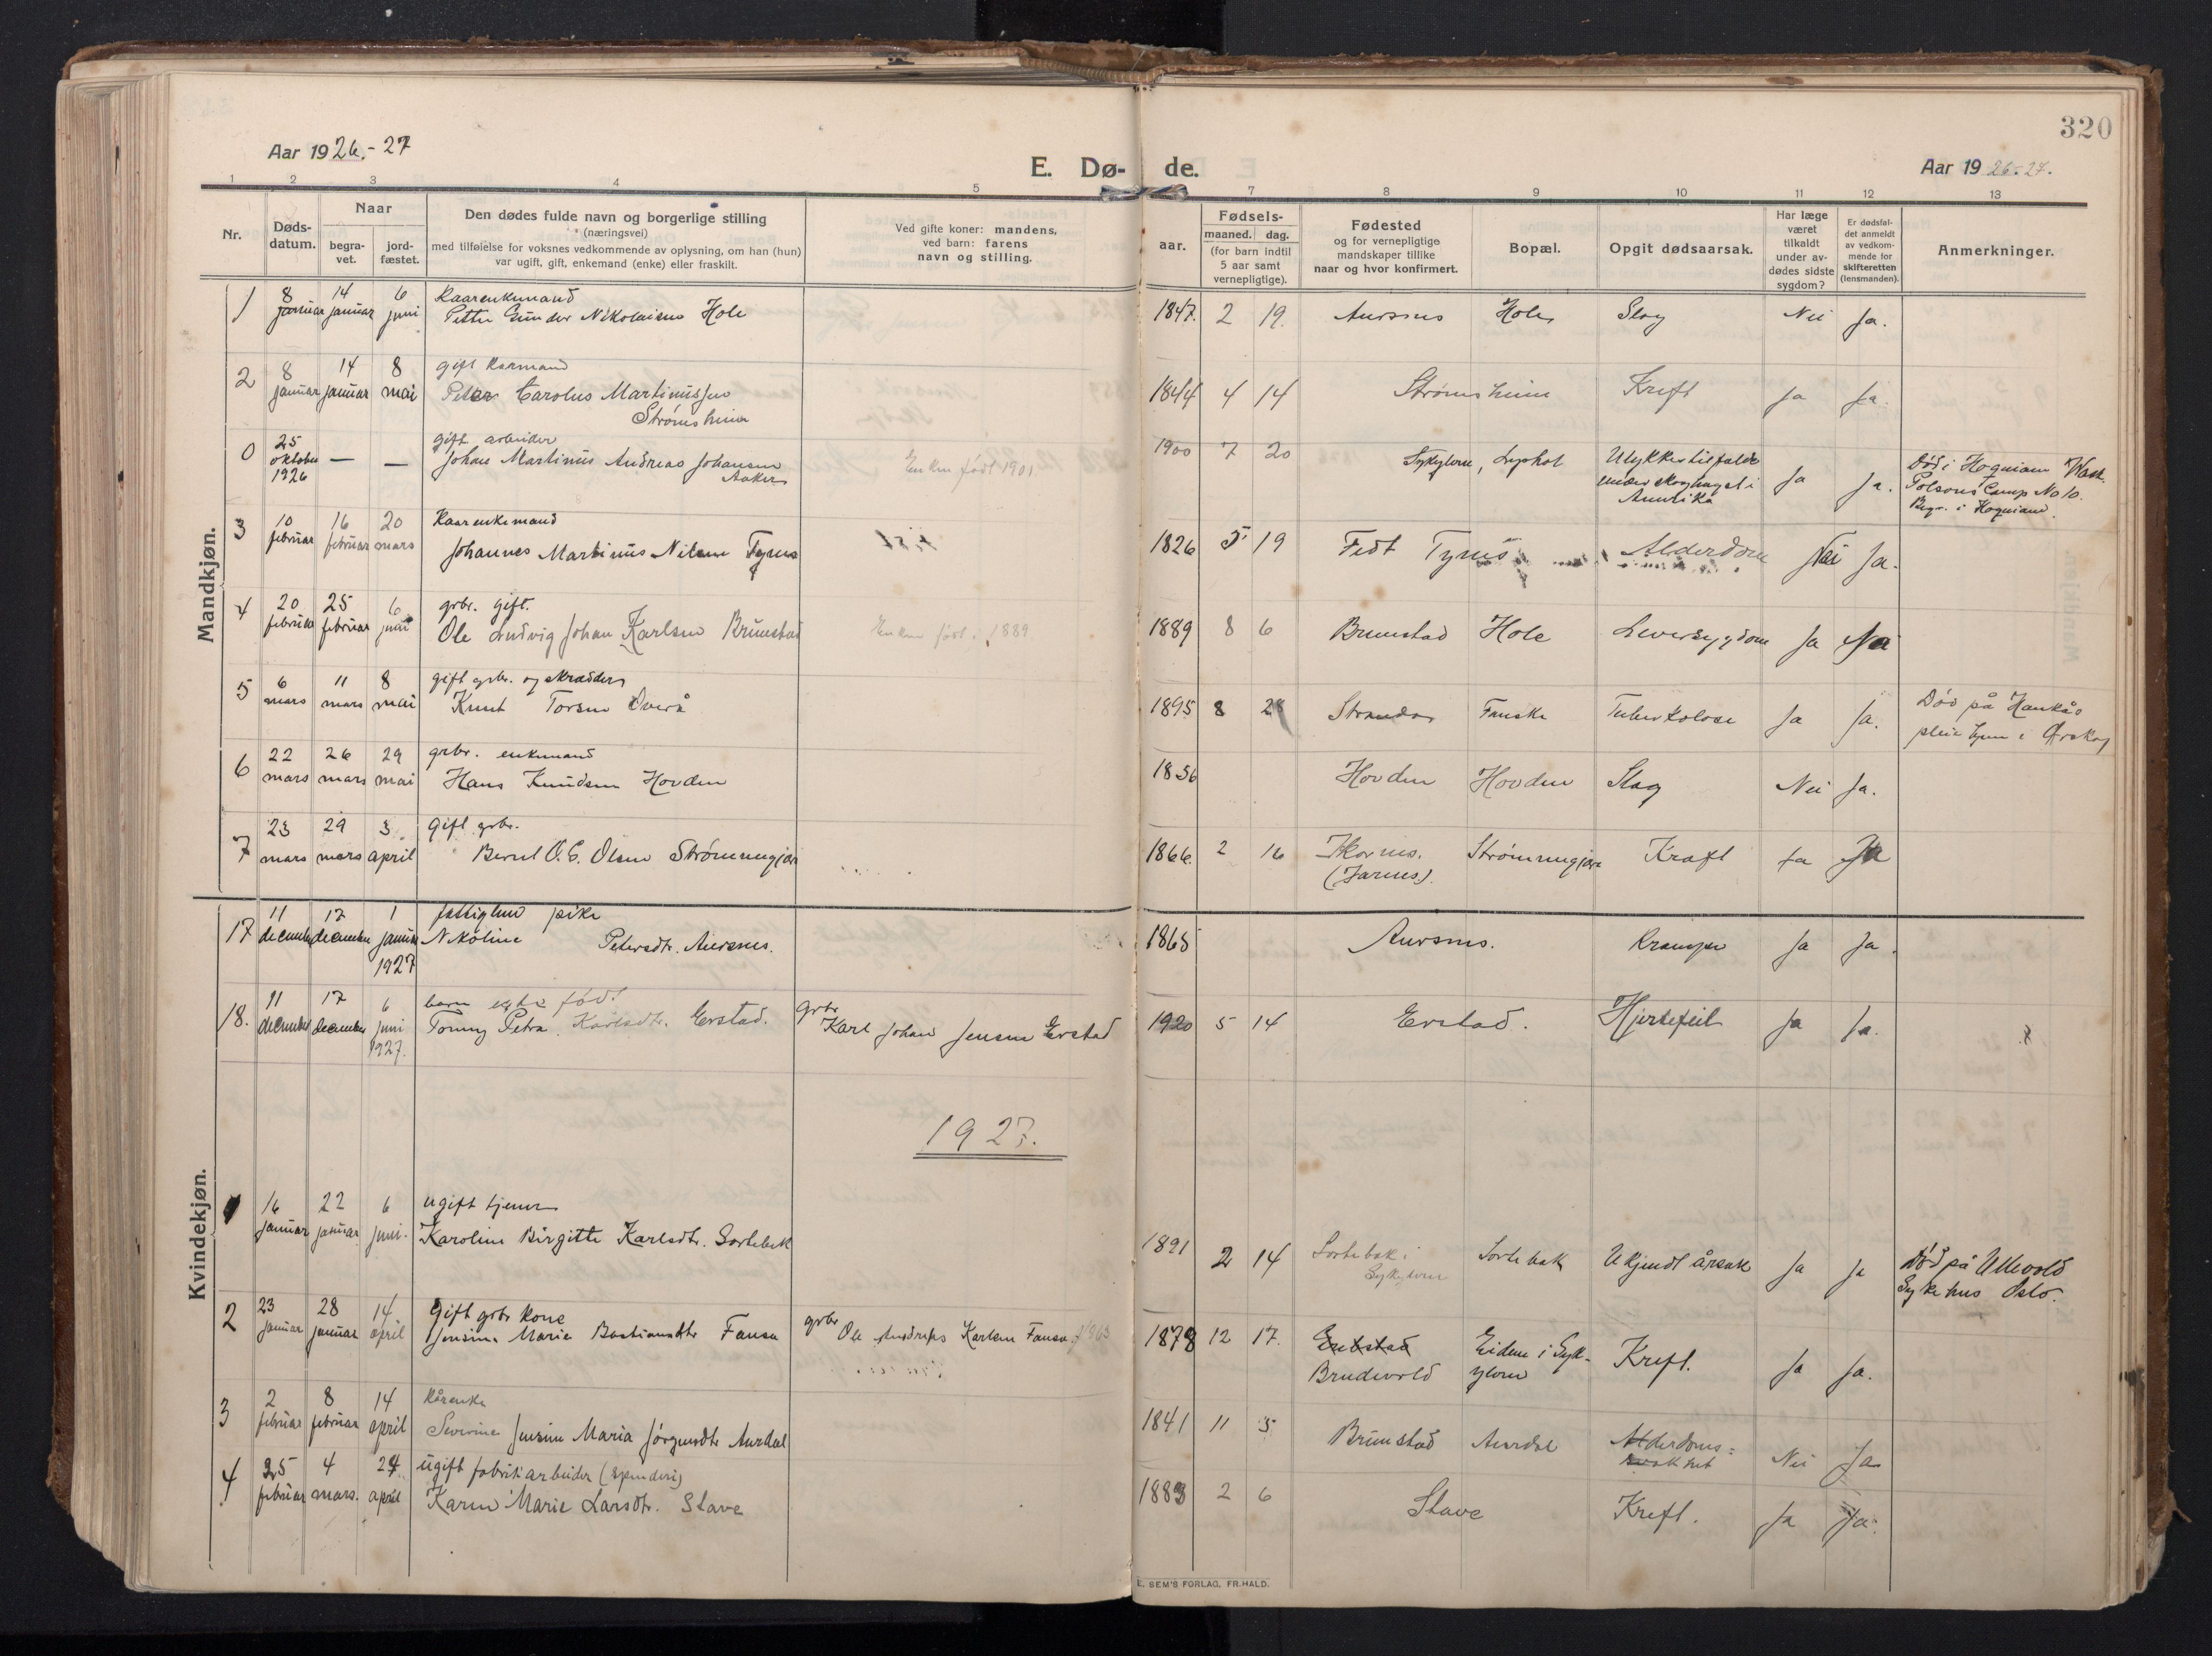 320
Aar 1926.-27
E. Dø- de.
Aar 1926-27.
1 2 3 4 5 7 8 9 10 11 12 13
Nr.
Døds-
datum.
Naar
begra-
vet.
jord-
fæstet.
Den dødes fulde navn og borgerlige stilling
(næringsvei)
med tilføielse for voksnes vedkommende av oplysning, om han (hun)
var ugift, gift, enkemand (enke) eller fraskilt.
Ved gifte koner: mandens,
ved barn: farens
navn og stilling.
aar.
Fødsels-
maaned. dag.
(for barn indtil
5 aar samt
vernepligtige).
Fødested
og for vernepligtige
mandskaper tillike
naar og hvor konfirmert.
Bopæl.
Opgit dødsaarsak.
Har læge
været
tilkaldt
under av-
dødes sidste
sygdom?
Er dødsfal-
det anmeldt
av vedkom-
mende for
skifteretten
(lensmanden).
Anmerkninger.
Mandkjøn.
1 8 januar 14 januar 6 juni
Kaarenkemand
Petter Nikolaisen Hole
1847. 2 19. Aursnes Hole Slag Nei Ja.
2 8 januar 14 januar 8 mai
gift kaarmand
Peter Carolus Martinussen
Strømsheim
1844 4 14 Strømsheim Kreft Ja Ja.
0 25 oktober 1926 — —
gift arbeider
Johan Martinus Andreas Johansen
Aaker
Enken født 1901
1900 7 20 Sykylven, Ulykkestilfælde
under skoghugst i
Amerika
Ja Ja.
Død i Hoquiam Wash.
Polsons Camp No 10.
Begr. i Hoquiam.
3 10 februar 16 februar 20 mars
Kaarenkemand
Johannes Martinus Nilsen Tynes
1826 5 19 Fedt Tynes Alderdom Nei Ja.
4 20 februar 25 februar 6 juni
grbr. gift.
Ole Ludvig Johan Karlsen Brunstad
Enken født i 1889
1889 8 6 Brunstad Hole Leversygdom Ja Ja
5 6 mars 11 mars 8 mai
gift grbr. og skrædder
Knut Torsen Överå
1895 8 Stranda Fauske Tuberkolose Ja Ja.
Død på Haukås
pleiehjem i Ørskog
6 22 mars 26 mars 29 mai
grbr. enkemand
Hans Knudsen Hovden
1856 Hovden Hovden Slag Nei Ja.
7 23 mars 29 mars 3 april
Gift grbr.
Bernt O. E. Olsen Strømmegjær
1866. 2 16 Ikornes.
(Jarnes).
Strømmegjær Kræft Ja Ja
Kvindekjøn.
17 11 december 17 december 1 januar 1927
fattiglem pike
Nikoline Petersdtr. Aursnes.
1865 Aursnes. Krampe Ja Ja.
18. 11 december 17 december 6 juni 1927.
barn egte født
Tonny Petra Karlsdtr. Erstad.
Grbr.
Karl Johan Jensen Erstad
1920 5 14 Erstad. Hjertefeil Ja Ja.
1927.
1 16 januar 22 januar 6 juni.
ugift tjener
Karoline Birgitte Karlsdtr. Sortebæk
1891 2 14 Sortebak i
Sykylven
Sortebak Ukjendt årsak Ja Ja
Død på Ullevold
Sykehus Oslo.
2 23 januar 28 januar 14 april
Gift grbr kone
Jensine Marie Bastiansdtr Fausa
grbr
Ole Andreas Karlsen Fausa f 1863
1878 12 17.
Brudevold
Eidem i Syk-
ylven
Kreft. Ja Ja.
3 2 februar 8 februar 14 april
Kårenke
Severine Jensine Maria Jörgensdtr Aurdal
1841 11 5 Brunstad Aurdal Alderdoms=
svakhet
Nei Ja
4 25 februar 4 mars. 24 april
ugift fabrikarbeider (spinderi)
Karen Marie Larsdtr. Stave
1883 2 6 Stave Kreft. Ja Ja.
E. SEM'S FORLAG, FR.HALD.